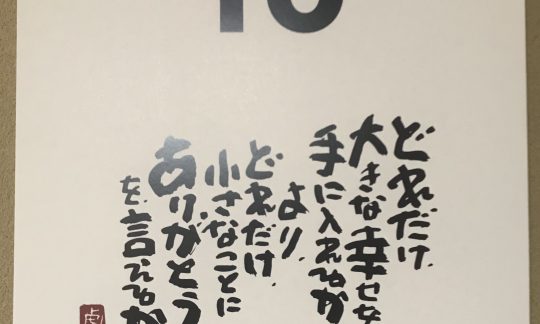 10
どれだけ
大きな幸せを
手に入れるか
より
どれだけ
小さなことに
ありがとう
を言えるか